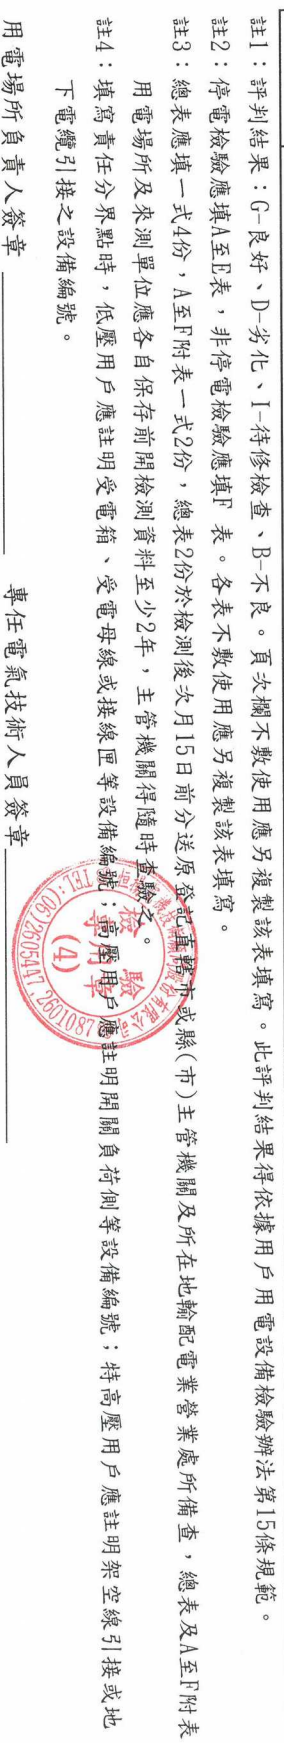 註1：評判結果：G-良好、D-劣化、I-待修檢查、B-不良。頁次欄不敷使用應另複製該表填寫。此評判結果得依據用戶用電設備檢驗辦法第15條規範。
註2：停電檢驗應填A至E表，非停電檢驗應填F 表。各表不敷使用應另複製該表填寫。
註3：總表應填一式4份，A至F附表一式2份，總表2份於檢測後次月15日前分送原登記直轄市或縣(市)主管機關及所在地輸配電業營業處所備查，總表及A至F附表
用電場所及來測單位應各自保存前開檢測資料至少2年，主管機關得隨時查驗之。
註4：填寫責任分界點時，低壓用戶應註明受電箱、受電母線或接線匣等設備編號；高壓用戶應註明開關負荷側等設備編號；特高壓用戶應註明架空線引接或地
下電纜引接之設備編號。
用電場所負責人簽章
專任電氣技術人員簽章
檢驗
專用章
(4)
TEL:(06)2605447 2601087